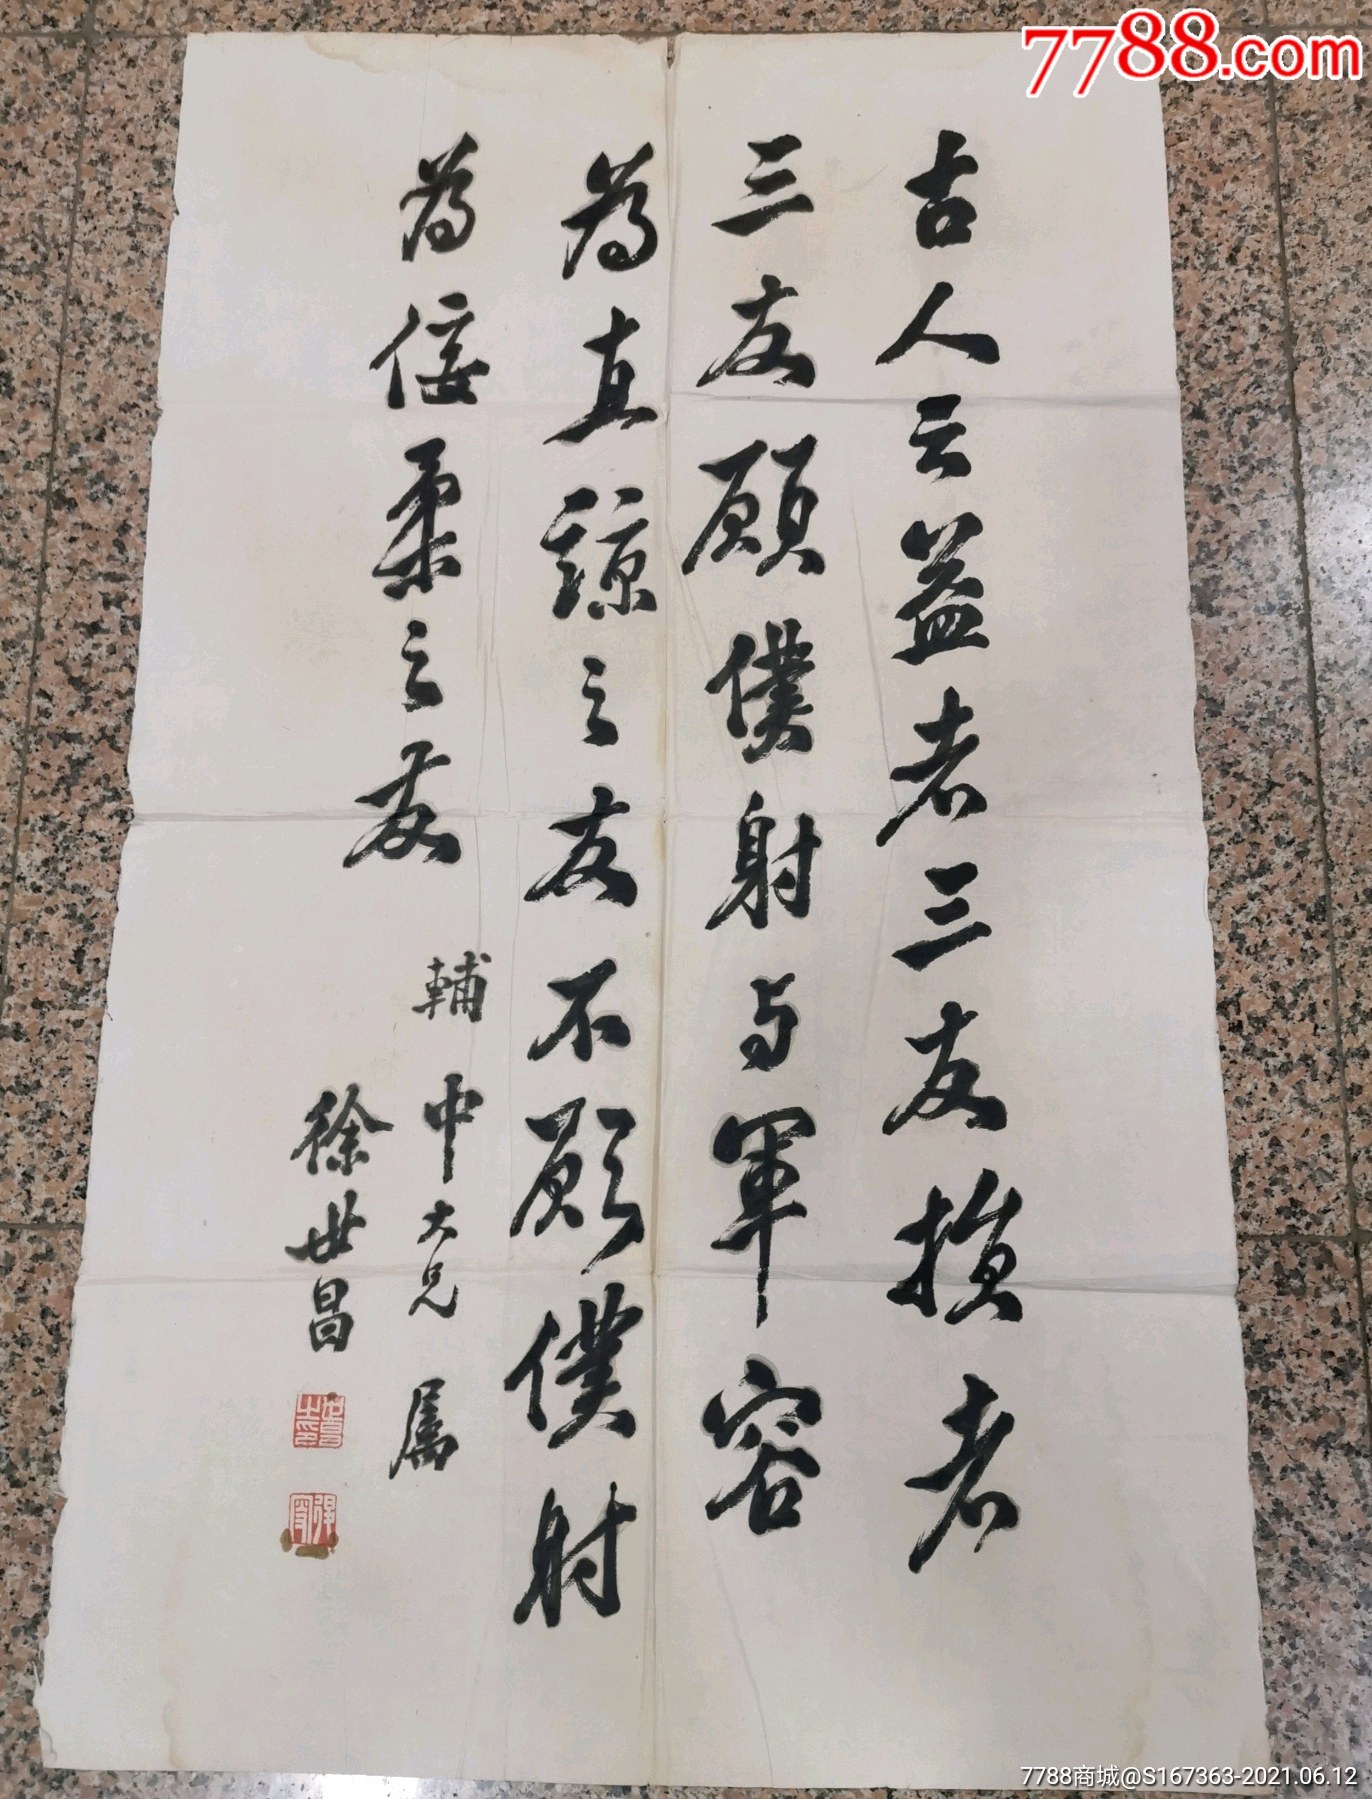 古人云益者三友損者
三友願僕射与軍容
為直諒之友不願僕射
為佞柔之友
輔中大兄屬
徐世昌
7788.com
7788商城@S167363-2021.06.12